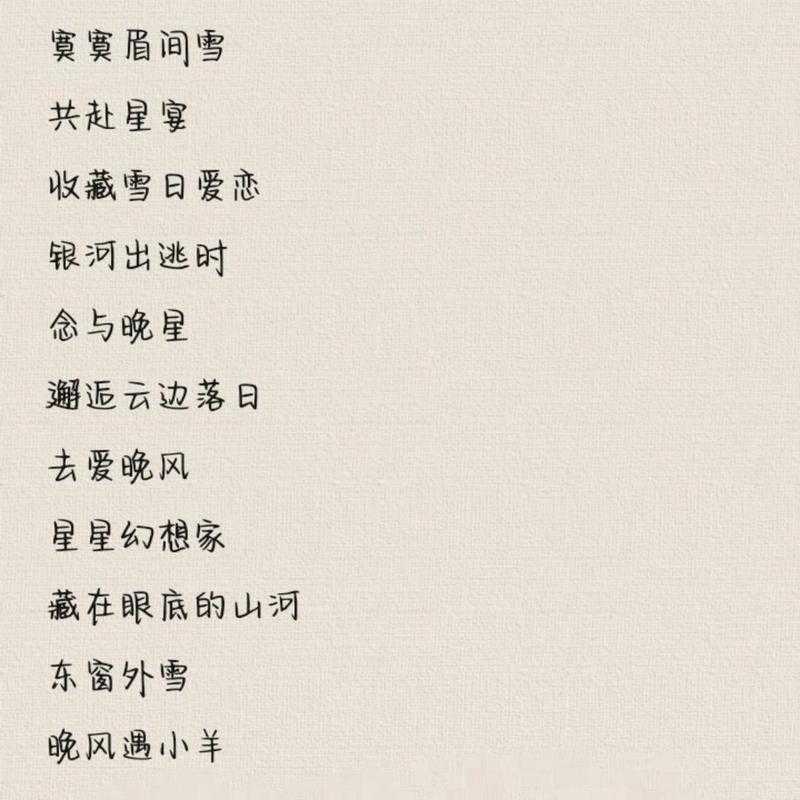 寞寞眉间雪
共赴星宴
收藏雪日爱恋
银河出逃时
念与晚星
邂逅云边落日
去爱晚风
星星幻想家
藏在眼底的山河
东窗外雪
晚风遇小羊